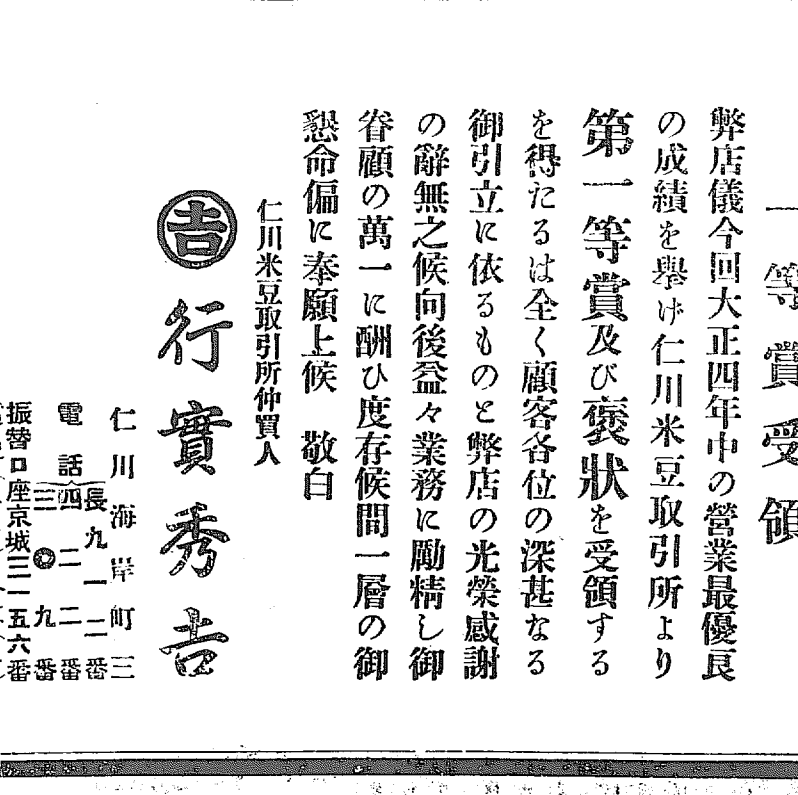 一等賞受領
弊店儀今回大正四年中の營業最優良
の成績を擧げ仁川米豆取引所より
第一等賞及び褒狀を受領する
を得たるは全く顧客各位の深甚なる
御引立に依るものと弊店の光榮感謝
の辭無之候向後益々業務に勵精し御
眷顧の萬一に酬ひ度存候間一層の御
懇命偏に奉願上候 敬白
仁川米豆取引所仲買人
吉 行實秀吉
仁川海岸町三
電話 長九一二番
四二二番
三〇九番
振替口座京城三一五六番